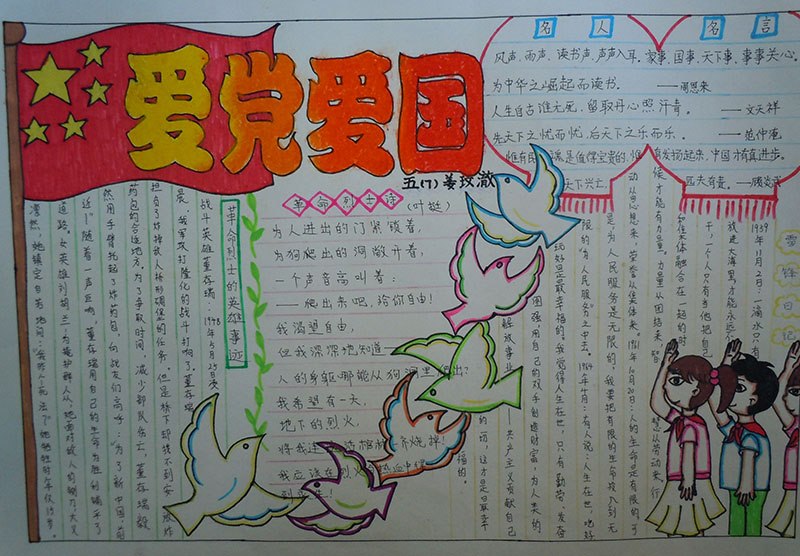 爱党爱国
五(7) 姜玟澈
名人名言
风声、雨声、读书声，声声入耳。家事、国事、天下事，事事关心。
为中华之崛起而读书。 ——周恩来
人生自古谁无死，留取丹心照汗青。 ——文天祥
先天下之忧而忧，后天下之乐而乐。 ——范仲淹
发扬起来，中国才有真进步。
天下兴亡，匹夫有责。——顾炎武
革命烈士诗(叶挺)
为人进出的门紧锁着，
为狗爬出的洞敞开着，
一个声音高叫着：
——爬出来吧，给你自由！
我渴望自由，
但我深深地知道——
人的身躯哪能从狗洞里爬出？
我希望有一天
地下的烈火，
将我连
我应该在烈火
革命烈士的英雄事迹
战斗英雄董存瑞：1948年5月25日凌
晨，我军攻打隆化的战斗打响了。董存瑞
担负了炸掉敌人桥形碉堡的任务。但是桥下却找不到安放炸
药包的合适地方。为了争取时间，减少部队伤亡，董存瑞毅
然用手臂托起了炸药包，向战友们高呼：“为了新中国，前
进！”随着一声巨响，董存瑞用自己的生命为胜利铺平了
道路。女英雄刘胡兰：为掩护群众，她面对敌人的铡刀大义
凛然，她镇定自若地问：“我咋个死法？”她牺牲时年仅15岁。
雷锋日记
1959年11月2日：一滴水只有
放进大海里才能永远不
干，一个人只有当他把自己
和集体融合在一起的时
候才能有力量。力量从团结来，智
慧从劳动来，行
动从思想来，荣誉从集体来。1961年10月20日：人的生命是有限的，可
是，为人民服务是无限的，我要把有限的生命，投入到无
限的“为人民服务”之中去。1964年4月：有人说：人生在世，吃好
玩好是最幸福的。我觉得人生在世，只有勤劳，发奋
图强，用自己的双手创造财富，为人类的
解放事业——共产主义贡献自己
的一切，这才是最幸
福的。